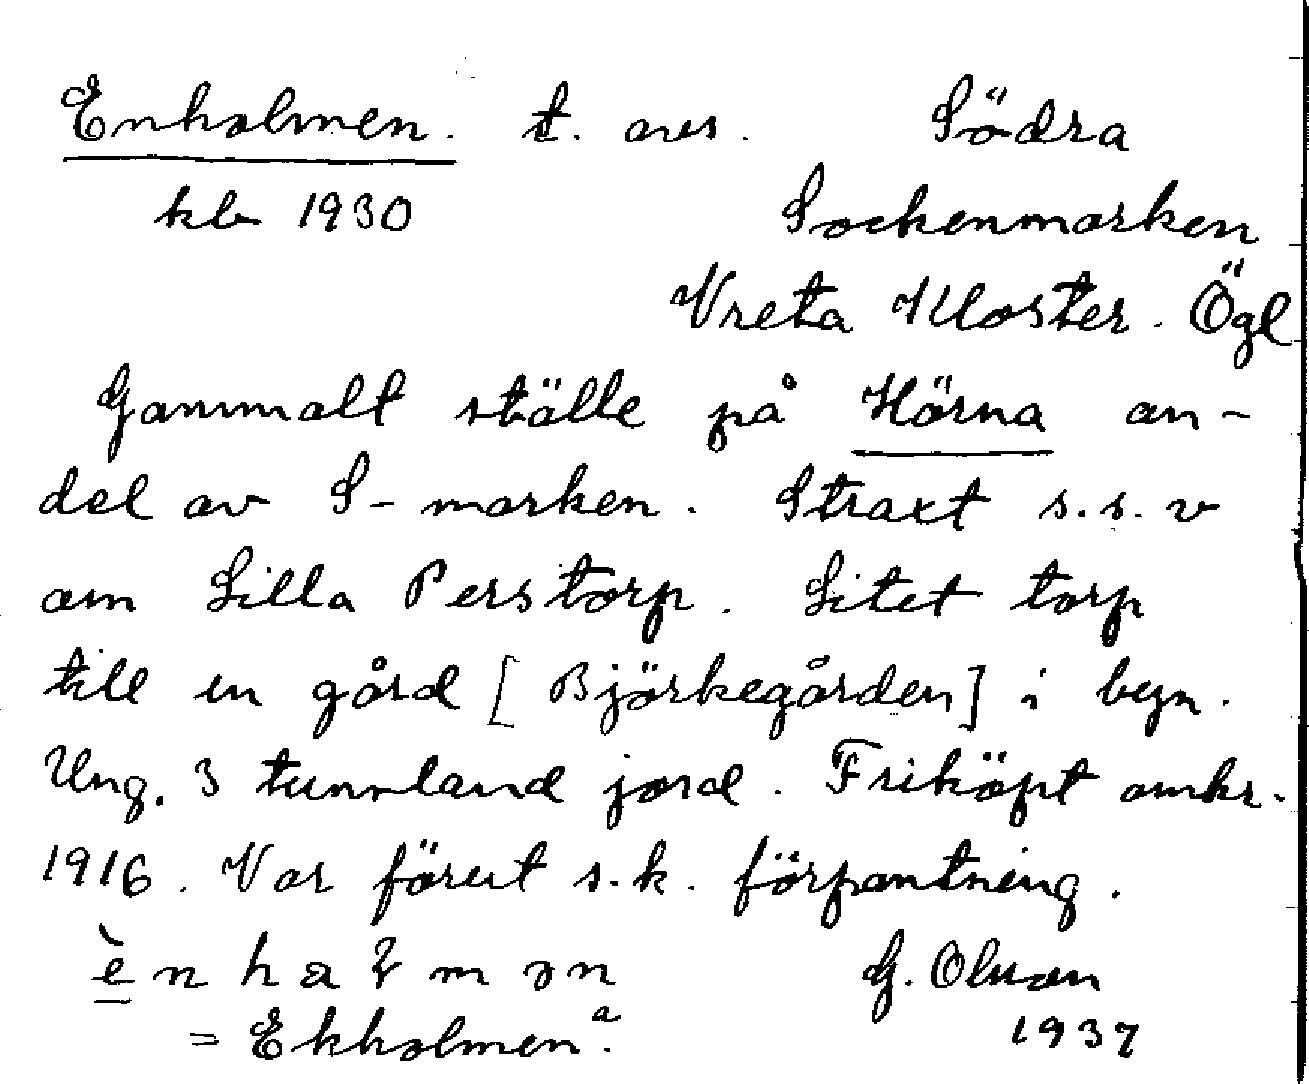 Enholmen. t. avs. Södra
kb 1930 Sockenmarken
Vreta Kloster. Ögl
Gammalt ställe på Hörna an-
del av S-marken. Straxt s.s.v
om Lilla Perstorp. Litet torp
till en gård [Björkegården] i byn.
Ung. 3 tunnland jord. Friköpt omkr.
1916. Var förut s.k. förpantning.
G. Olsson
= Ekholmen. a 1937